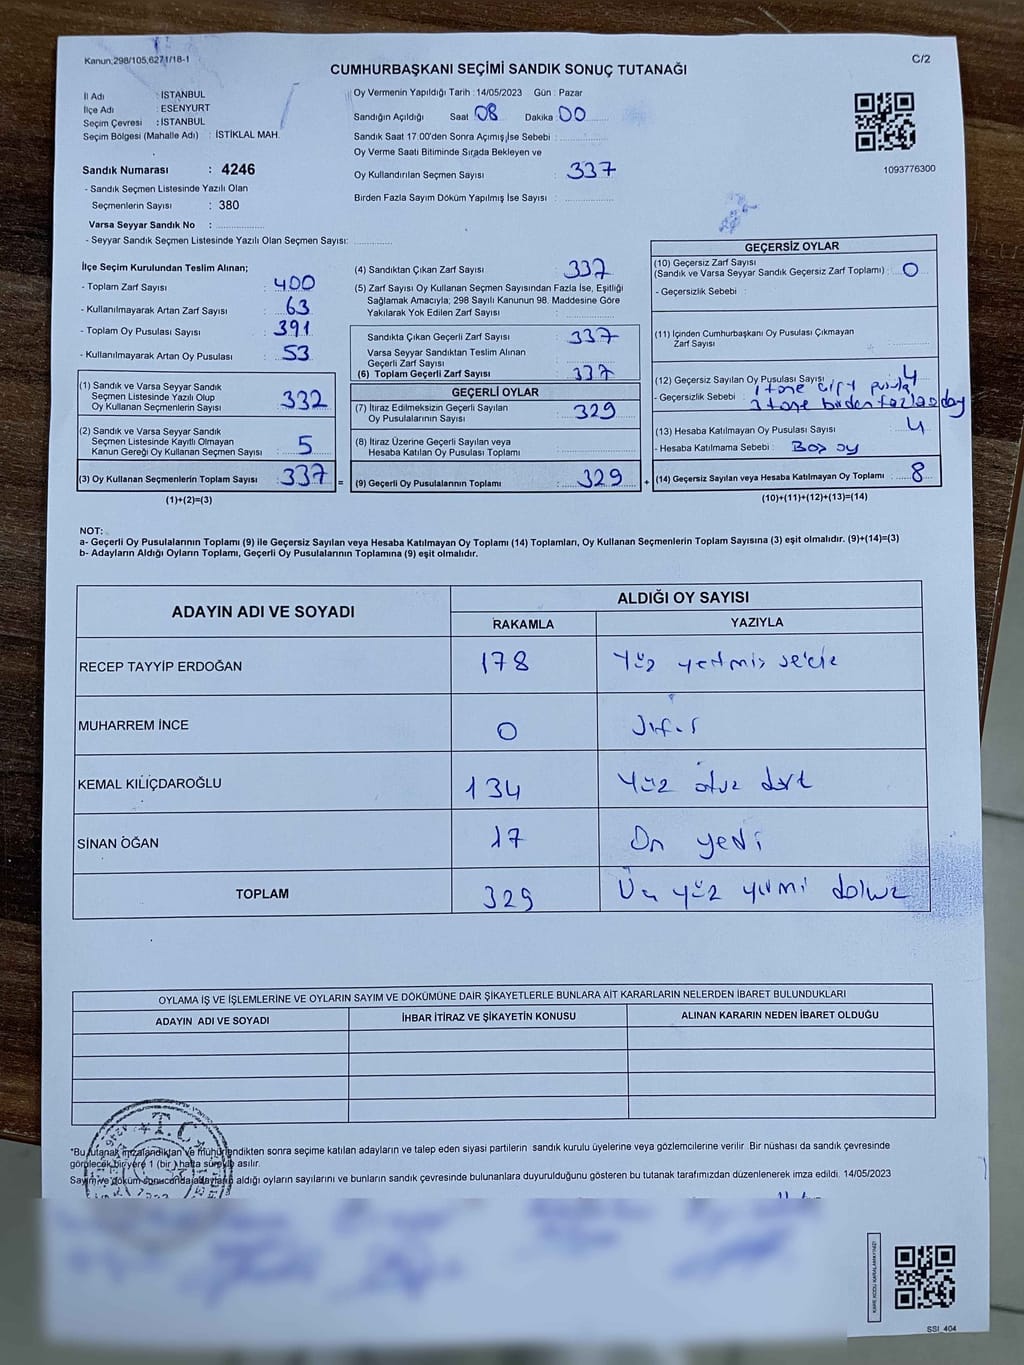 Kanun,298/105,6271/18-1
C/2
CUMHURBAŞKANI SEÇİMİ SANDIK SONUÇ TUTANAĞI
İl Adı : İSTANBUL
İlçe Adı : ESENYURT
Seçim Çevresi : İSTANBUL
Seçim Bölgesi (Mahalle Adı) : İSTİKLAL MAH.
Sandık Numarası : 4246
- Sandık Seçmen Listesinde Yazılı Olan
Seçmenlerin Sayısı : 380
Varsa Seyyar Sandık No :
- Seyyar Sandık Seçmen Listesinde Yazılı Olan Seçmen Sayısı:
Oy Vermenin Yapıldığı Tarih : 14/05/2023 Gün : Pazar
Sandığın Açıldığı Saat 08 Dakika : 00
Sandık Saat 17:00'den Sonra Açımış İse Sebebi :
Oy Verme Saati Bitiminde Sırada Bekleyen ve
Oy Kullandırılan Seçmen Sayısı : 337
Birden Fazla Sayım Döküm Yapılmış İse Sayısı :
1093776300
İlçe Seçim Kurulundan Teslim Alınan;
- Toplam Zarf Sayısı : 400
- Kullanılmayarak Artan Zarf Sayısı : 63
- Toplam Oy Pusulası Sayısı : 391
- Kullanılmayarak Artan Oy Pusulası : 53
(1) Sandık ve Varsa Seyyar Sandık
Seçmen Listesinde Yazılı Olup
Oy Kullanan Seçmenlerin Sayısı : 332
(2) Sandık ve Varsa Seyyar Sandık
Seçmen Listesinde Kayıtlı Olmayan
Kanun Gereği Oy Kullanan Seçmen Sayısı : 5
(3) Oy Kullanan Seçmenlerin Toplam Sayısı : 337 =
(1)+(2)=(3)
(4) Sandıktan Çıkan Zarf Sayısı : 337
(5) Zarf Sayısı Oy Kullanan Seçmen Sayısından Fazla İse, Eşitliği
Sağlamak Amacıyla; 298 Sayılı Kanunun 98. Maddesine Göre
Yakılarak Yok Edilen Zarf Sayısı :
Sandıkta Çıkan Geçerli Zarf Sayısı : 337
Varsa Seyyar Sandıktan Teslim Alınan
Geçerli Zarf Sayısı :
(6) Toplam Geçerli Zarf Sayısı : 337
GEÇERLİ OYLAR
(7) İtiraz Edilmeksizin Geçerli Sayılan
Oy Pusulalarının Sayısı : 329
(8) İtiraz Üzerine Geçerli Sayılan veya
Hesaba Katılan Oy Pusulası Toplamı :
(9) Geçerli Oy Pusulalarının Toplamı : 329 +
GEÇERSİZ OYLAR
(10) Geçersiz Zarf Sayısı
(Sandık ve Varsa Seyyar Sandık Geçersiz Zarf Toplamı) : 0
- Geçersizlik Sebebi :
(11) İçinden Cumhurbaşkanı Oy Pusulası Çıkmayan
Zarf Sayısı :
(12) Geçersiz Sayılan Oy Pusulası Sayısı : 4
- Geçersizlik Sebebi : 1 tane çift pusula
3 tane birden fazla aday
(13) Hesaba Katılmayan Oy Pusulası Sayısı : 4
- Hesaba Katılmama Sebebi : Boş oy
(14) Geçersiz Sayılan veya Hesaba Katılmayan Oy Toplamı : 8
(10)+(11)+(12)+(13)=(14)
NOT:
a- Geçerli Oy Pusulalarının Toplamı (9) ile Geçersiz Sayılan veya Hesaba Katılmayan Oy Toplamı (14) Toplamları, Oy Kullanan Seçmenlerin Toplam Sayısına (3) eşit olmalıdır. (9)+(14)=(3)
b- Adayların Aldığı Oyların Toplamı, Geçerli Oy Pusulalarının Toplamına (9) eşit olmalıdır.
ADAYIN ADI VE SOYADI ALDIĞI OY SAYISI
RAKAMLA YAZIYLA
RECEP TAYYİP ERDOĞAN 178 Yüz yetmiş sekiz
MUHARREM İNCE 0 Sıfır
KEMAL KILIÇDAROĞLU 134 Yüz otuz dört
SİNAN OĞAN 17 On yedi
TOPLAM 329 Üç yüz yirmi dokuz
OYLAMA İŞ VE İŞLEMLERİNE VE OYLARIN SAYIM VE DÖKÜMÜNE DAİR ŞİKAYETLERLE BUNLARA AİT KARARLARIN NELERDEN İBARET BULUNDUKLARI
ADAYIN ADI VE SOYADI İHBAR İTİRAZ VE ŞİKAYETİN KONUSU ALINAN KARARIN NEDEN İBARET OLDUĞU
*Bu tutanak imzalandıktan ve mühürlendikten sonra seçime katılan adayların ve talep eden siyasi partilerin sandık kurulu üyelerine veya gözlemcilerine verilir Bir nüshası da sandık çevresinde
görülecek bir yere 1 (bir ) hafta süreyle asılır.
Sayım ve döküm sonucunda adayların aldığı oyların sayılarını ve bunların sandık çevresinde bulunanlara duyurulduğunu gösteren bu tutanak tarafımızdan düzenlenerek imza edildi. 14/05/2023
T.C.
SSI_404